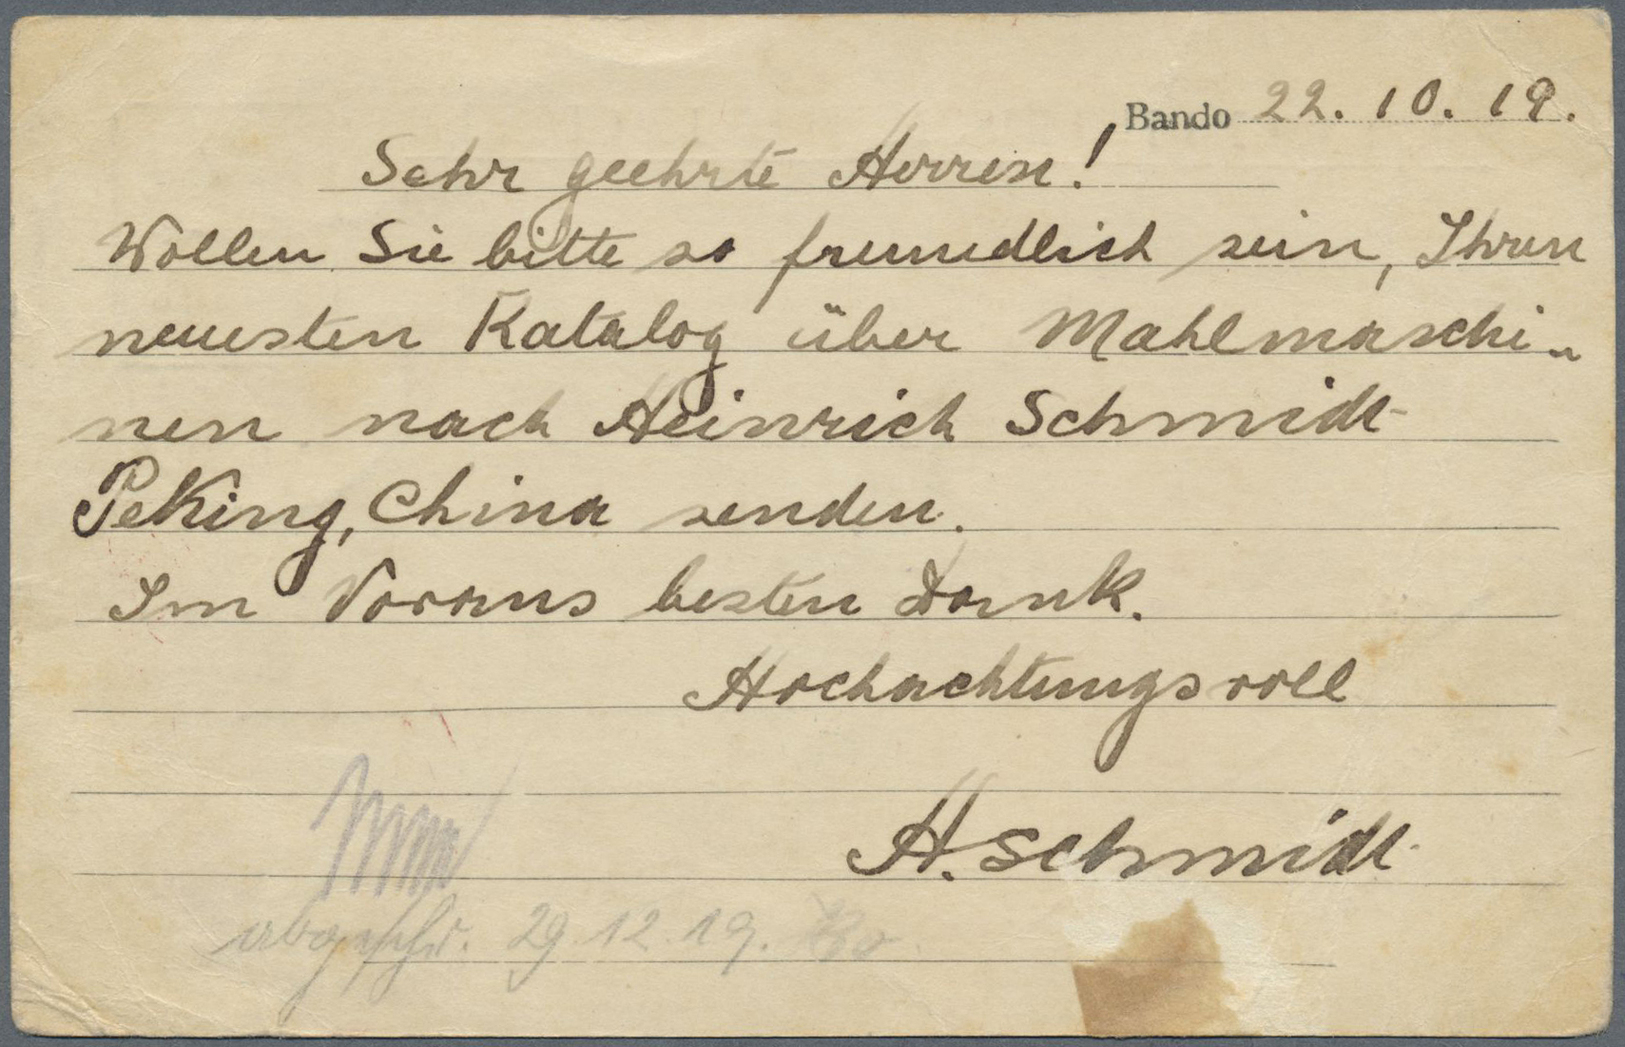 Bando 22. 10. 19.
Sehr geehrte Herren!
Wollen Sie bitte so freundlich sein, Ihren
neuesten Katalog über Mahlmaschi-
nen nach Heinrich Schmidt
Peking, China senden.
Im Voraus besten Dank.
Hochachtungsvoll
H. Schmidt
29.12.19.